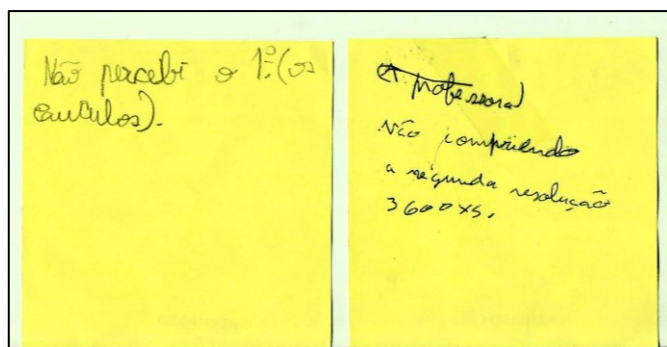 Não percebi o 1º (os
cauculos).
A professora
Não compriendo
a segunda resolução
3600x5.